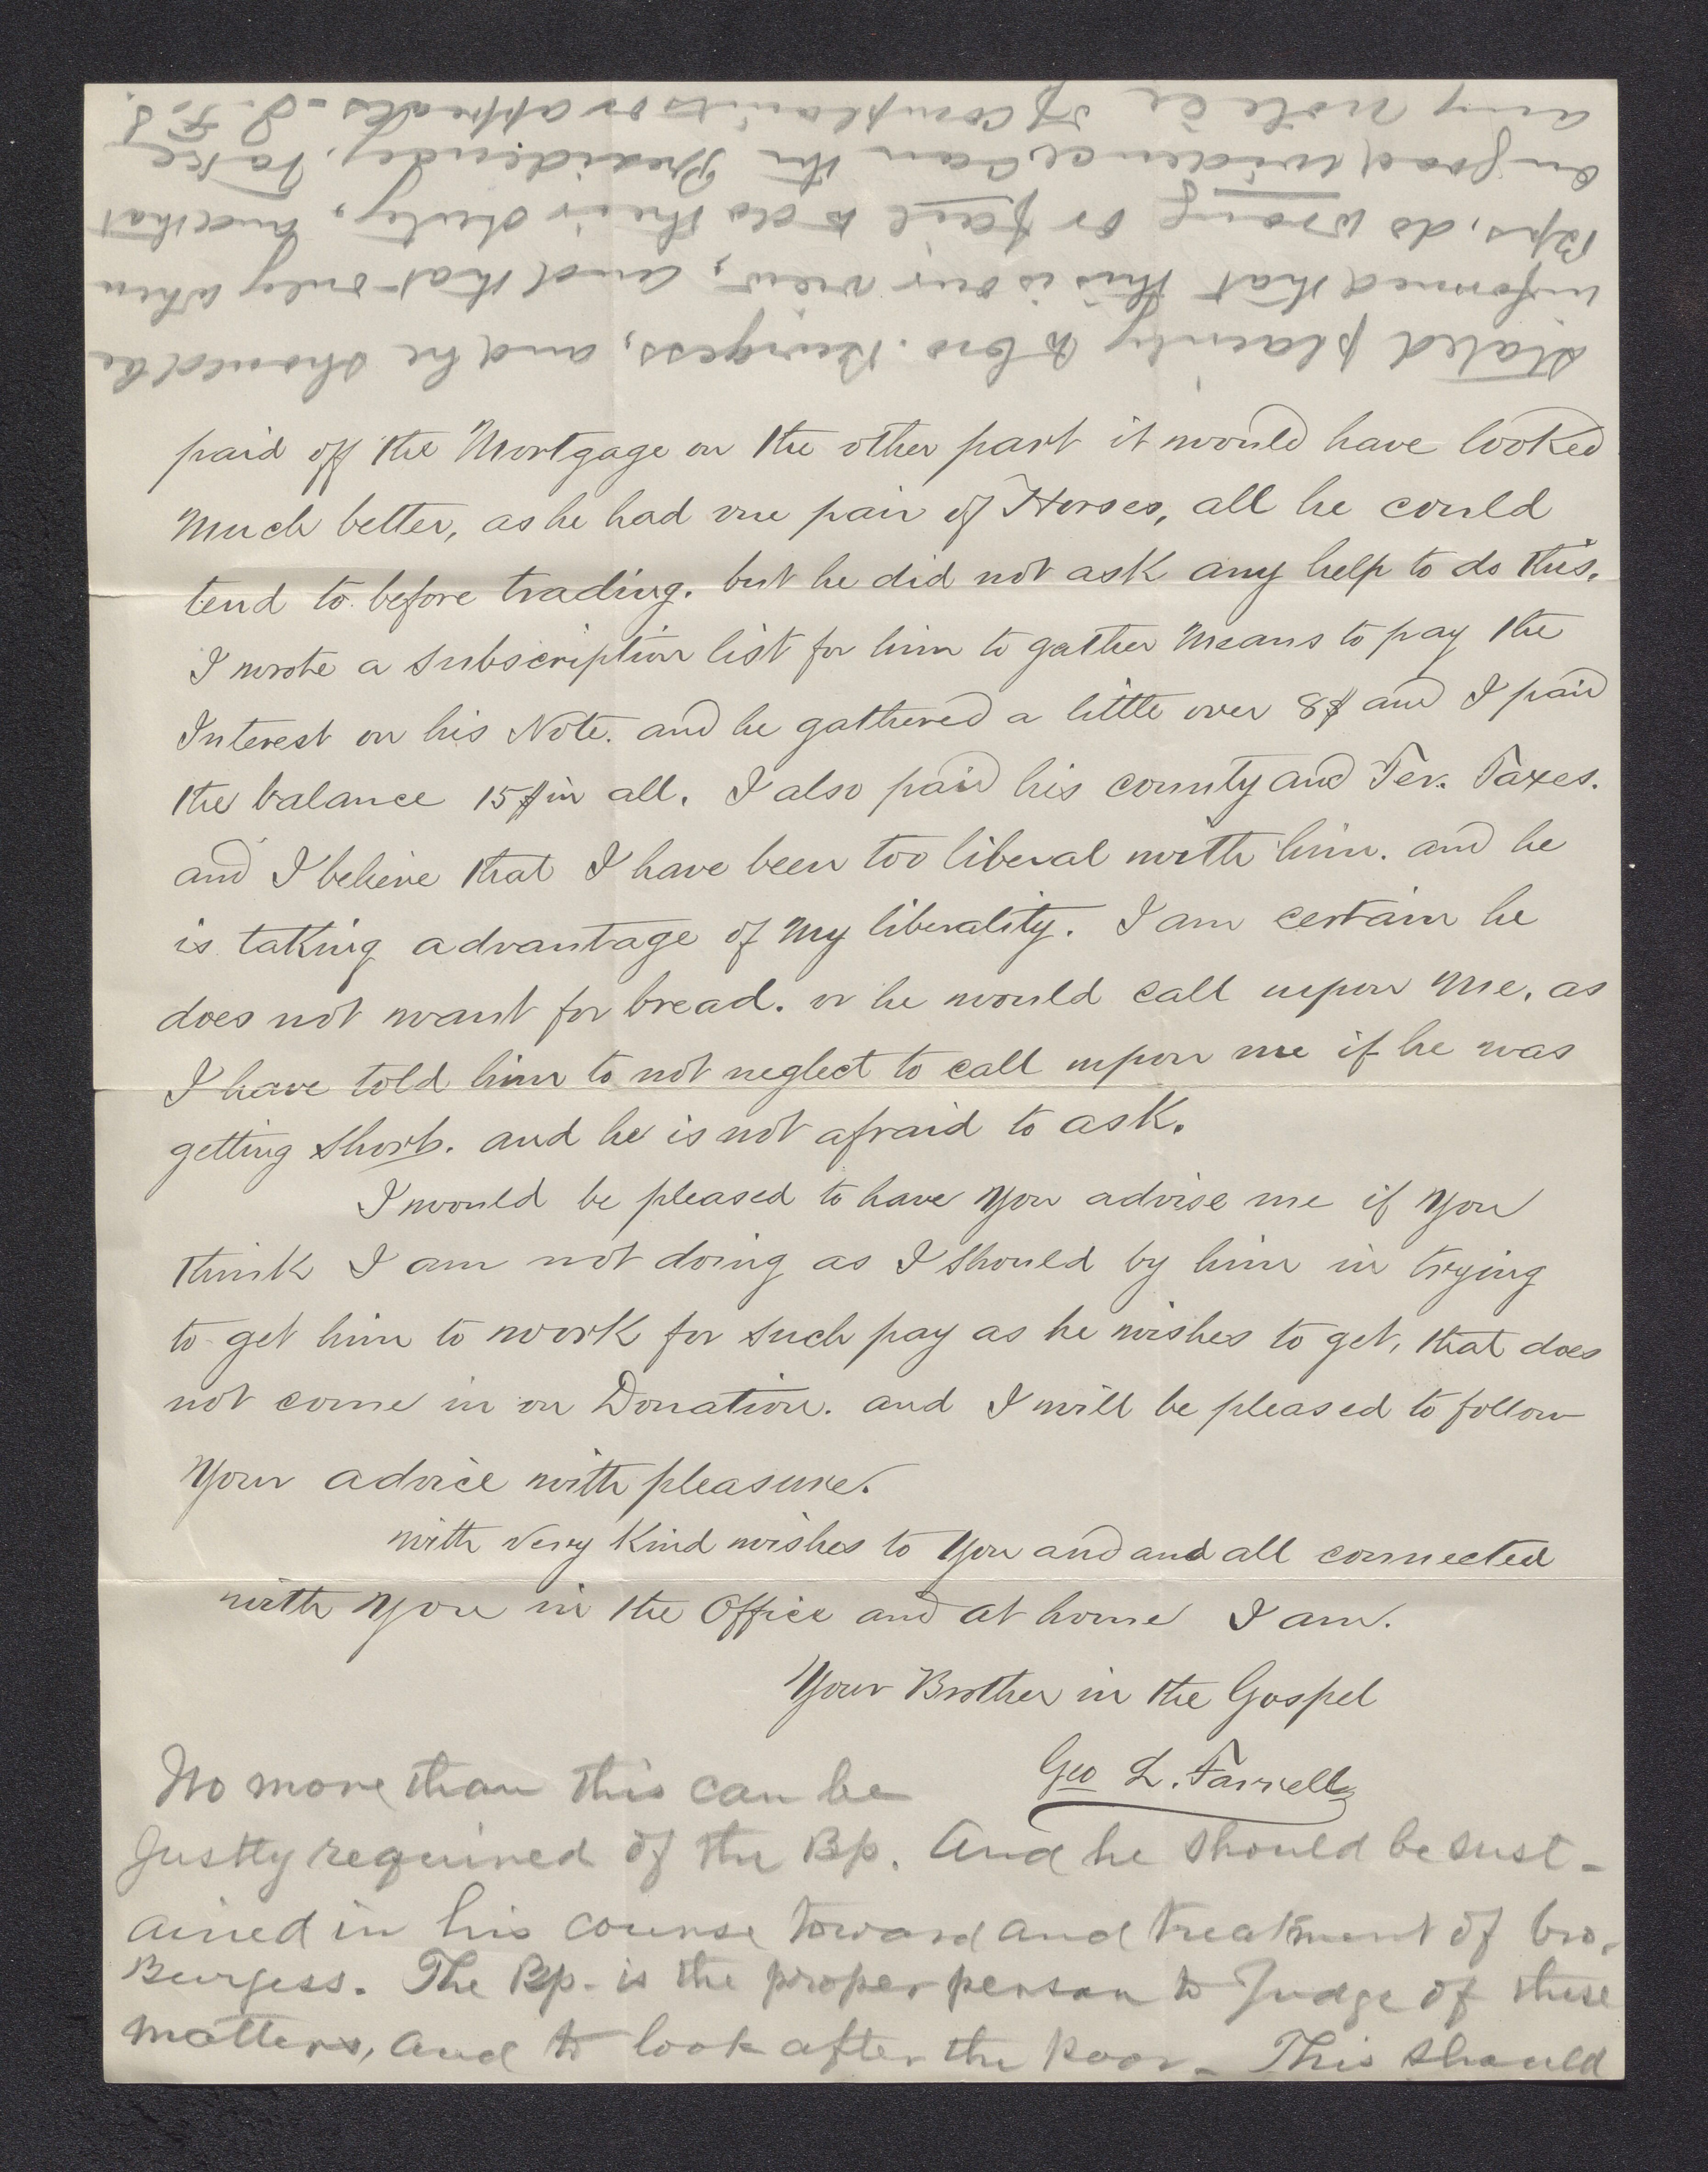 paid off the Mortgage on the other part it would have looked
Much better, as he had one pair of Horses, all he could
tend to before trading. but he did not ask any help to do this.
I wrote a subscription list for him to gather Means to pay the
Interest on his Note. and he gathered a little over 8$ and I paid
the balance 15$ in all. I also paid his county and Ter. Taxes.
and I believe that I have been too liberal with him. and he
is taking advantage of My liberality. I am certain he
does not want for bread. or he would call upon Me, as
I have told him to not neglect to call upon me if he was
getting Short. and he is not afraid to ask.
I would be pleased to have You advise me if You
think I am not doing as I should by him in trying
to get him to work for such pay as he wishes to get, that does
not come in on Donation. and I will be pleased to follow
Your advice with pleasure.
with Very Kind wishes to You and and all connected
with You in the Office and at home I am.
Your Brother in the Gospel
Geo L. Farrell
No more than this can be
Justly required of the Bp. And he should be sust-
ained in his course toward and treatment of bro.
Burgess. The Bp. is the proper person to Judge of these
matters, and to look after the Poor_ This should
stated plainly to bro. Burgess, and he should be
informed that this is our view, and that only when
Bps. do wrong or fail to do their duty, and that
on good evidence can the Presidency, take
any notice of complaints or appeals- J. F. S.